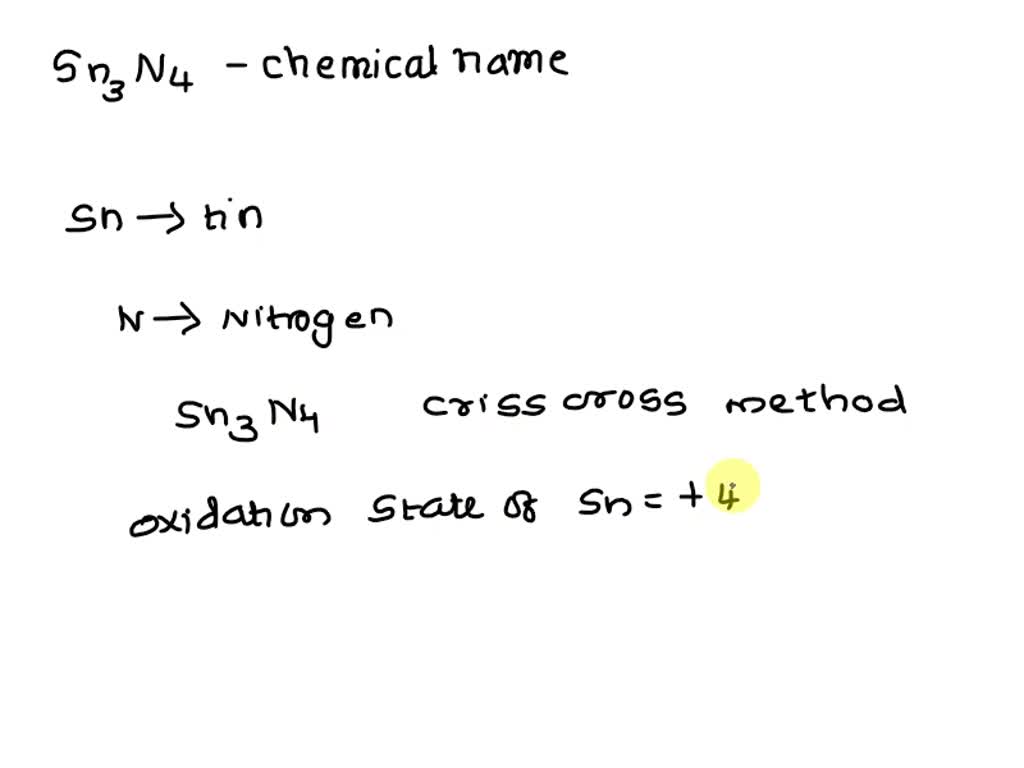 Sn₃N₄ - chemical name
Sn → tin
N → Nitrogen
Sn₃N₄ criss cross method
oxidation state of Sn = +4